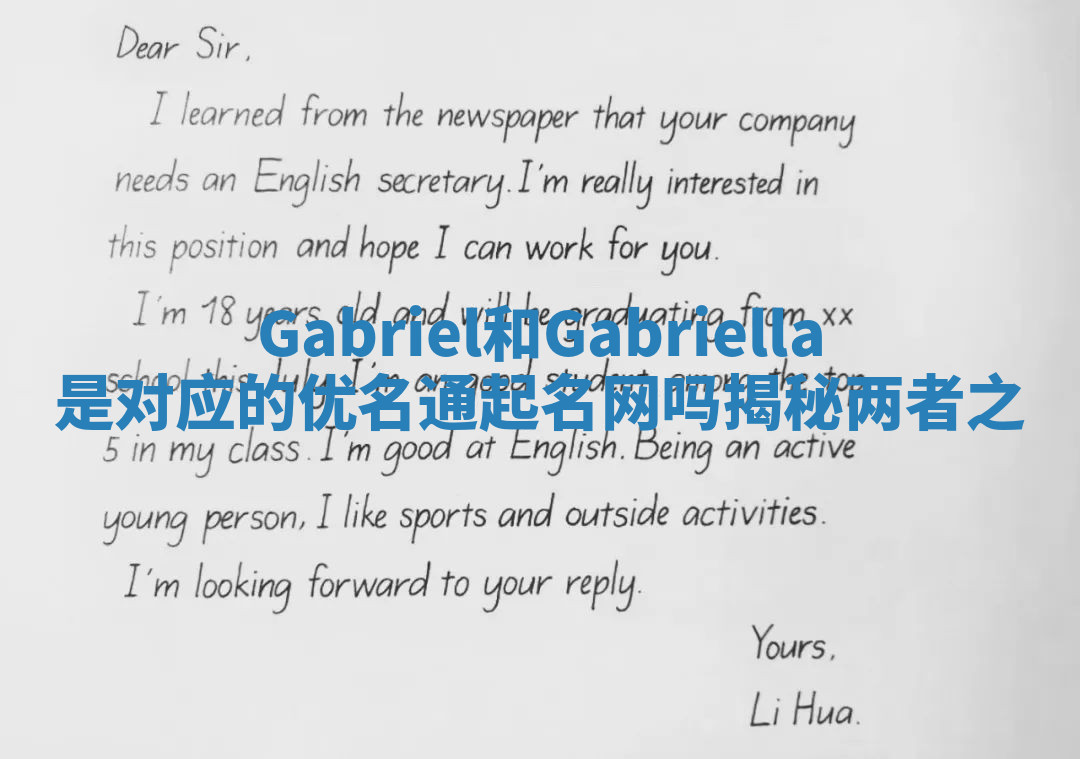 Dear Sir,
I learned from the newspaper that your company
needs an English secretary. I'm really interested in
this position and hope I can work for you.
I'm 18 years old and will be graduating from xx
Gabriel和Gabriella
school this July. I'm an good student among the top
是对应的优名通起名网吗揭秘两者之
5 in my class. I'm good at English. Being an active
young person, I like sports and outside activities.
I'm looking forward to your reply.
Yours,
Li Hua.